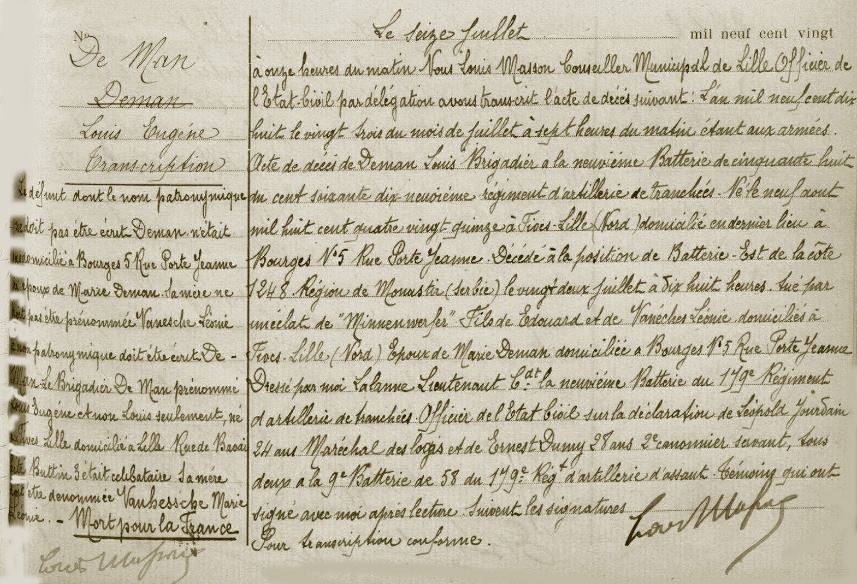 No
De Man
Deman
Louis Eugène
Transcription
Le défunt dont le nom patronymique
doit pas être écrit Deman n'était
domicilié à Bourges 5 Rue Porte Jeanne
époux de Marie Deman. Sa mère ne
pas être prénommée Vanesche Léonie
nom patronymique doit être écrit De-
Man. Le Brigadier De Man prénommé
Louis Eugène et non Louis seulement, né
Fives Lille domicilié à Lille Rue de Bavai
Buttin 3 était célibataire Sa mère
doit être dénommée Vanhessche Marie
Léonie. - Mort pour la France
Louis Masson
Le seize Juillet mil neuf cent vingt
à onze heures du matin Nous Louis Masson Conseiller Municipal de Lille Officier de
l'Etat-Civil par délégation avons transcrit l'acte de décès suivant: L'an mil neuf cent dix
huit le vingt trois du mois de juillet à sept heures du matin étant aux armées.
Acte de décès de Deman Louis Brigadier a la neuvième Batterie de cinquante huit
du cent soixante dix neuvième régiment d'artillerie de tranchées. Né le neuf aout
mil huit cent quatre vingt quinze à Fives-Lille (Nord) domicilié en dernier lieu à
Bourges N°5 Rue Porte Jeanne. Décédé à la position de Batterie - Est de la côte
1248. Région de Monastir (Serbie) le vingt deux juillet à dix huit heures. Tué par
un éclat de "Minnenwerfer" Fils de Edouard et de Vanéches Léonie domiciliés à
Fives-Lille (Nord) Epoux de Marie Deman domiciliée a Bourges N°5 Rue Porte Jeanne
Dressé par moi Lalanne Lieutenant Cdt la neuvième Batterie du 179e Régiment
d'artillerie de tranchées. Officier de l'Etat Civil sur la déclaration de Léopold Jourdain
24 ans Maréchal des logis et de Ernest Dumy 27 ans 2e canonnier servant, tous
deux a la 9e Batterie de 58 du 179e Régt d'artillerie d'assaut. Témoins qui ont
signé avec moi après lecture. Suivent les signatures
Pour transcription conforme.
Louis Masson